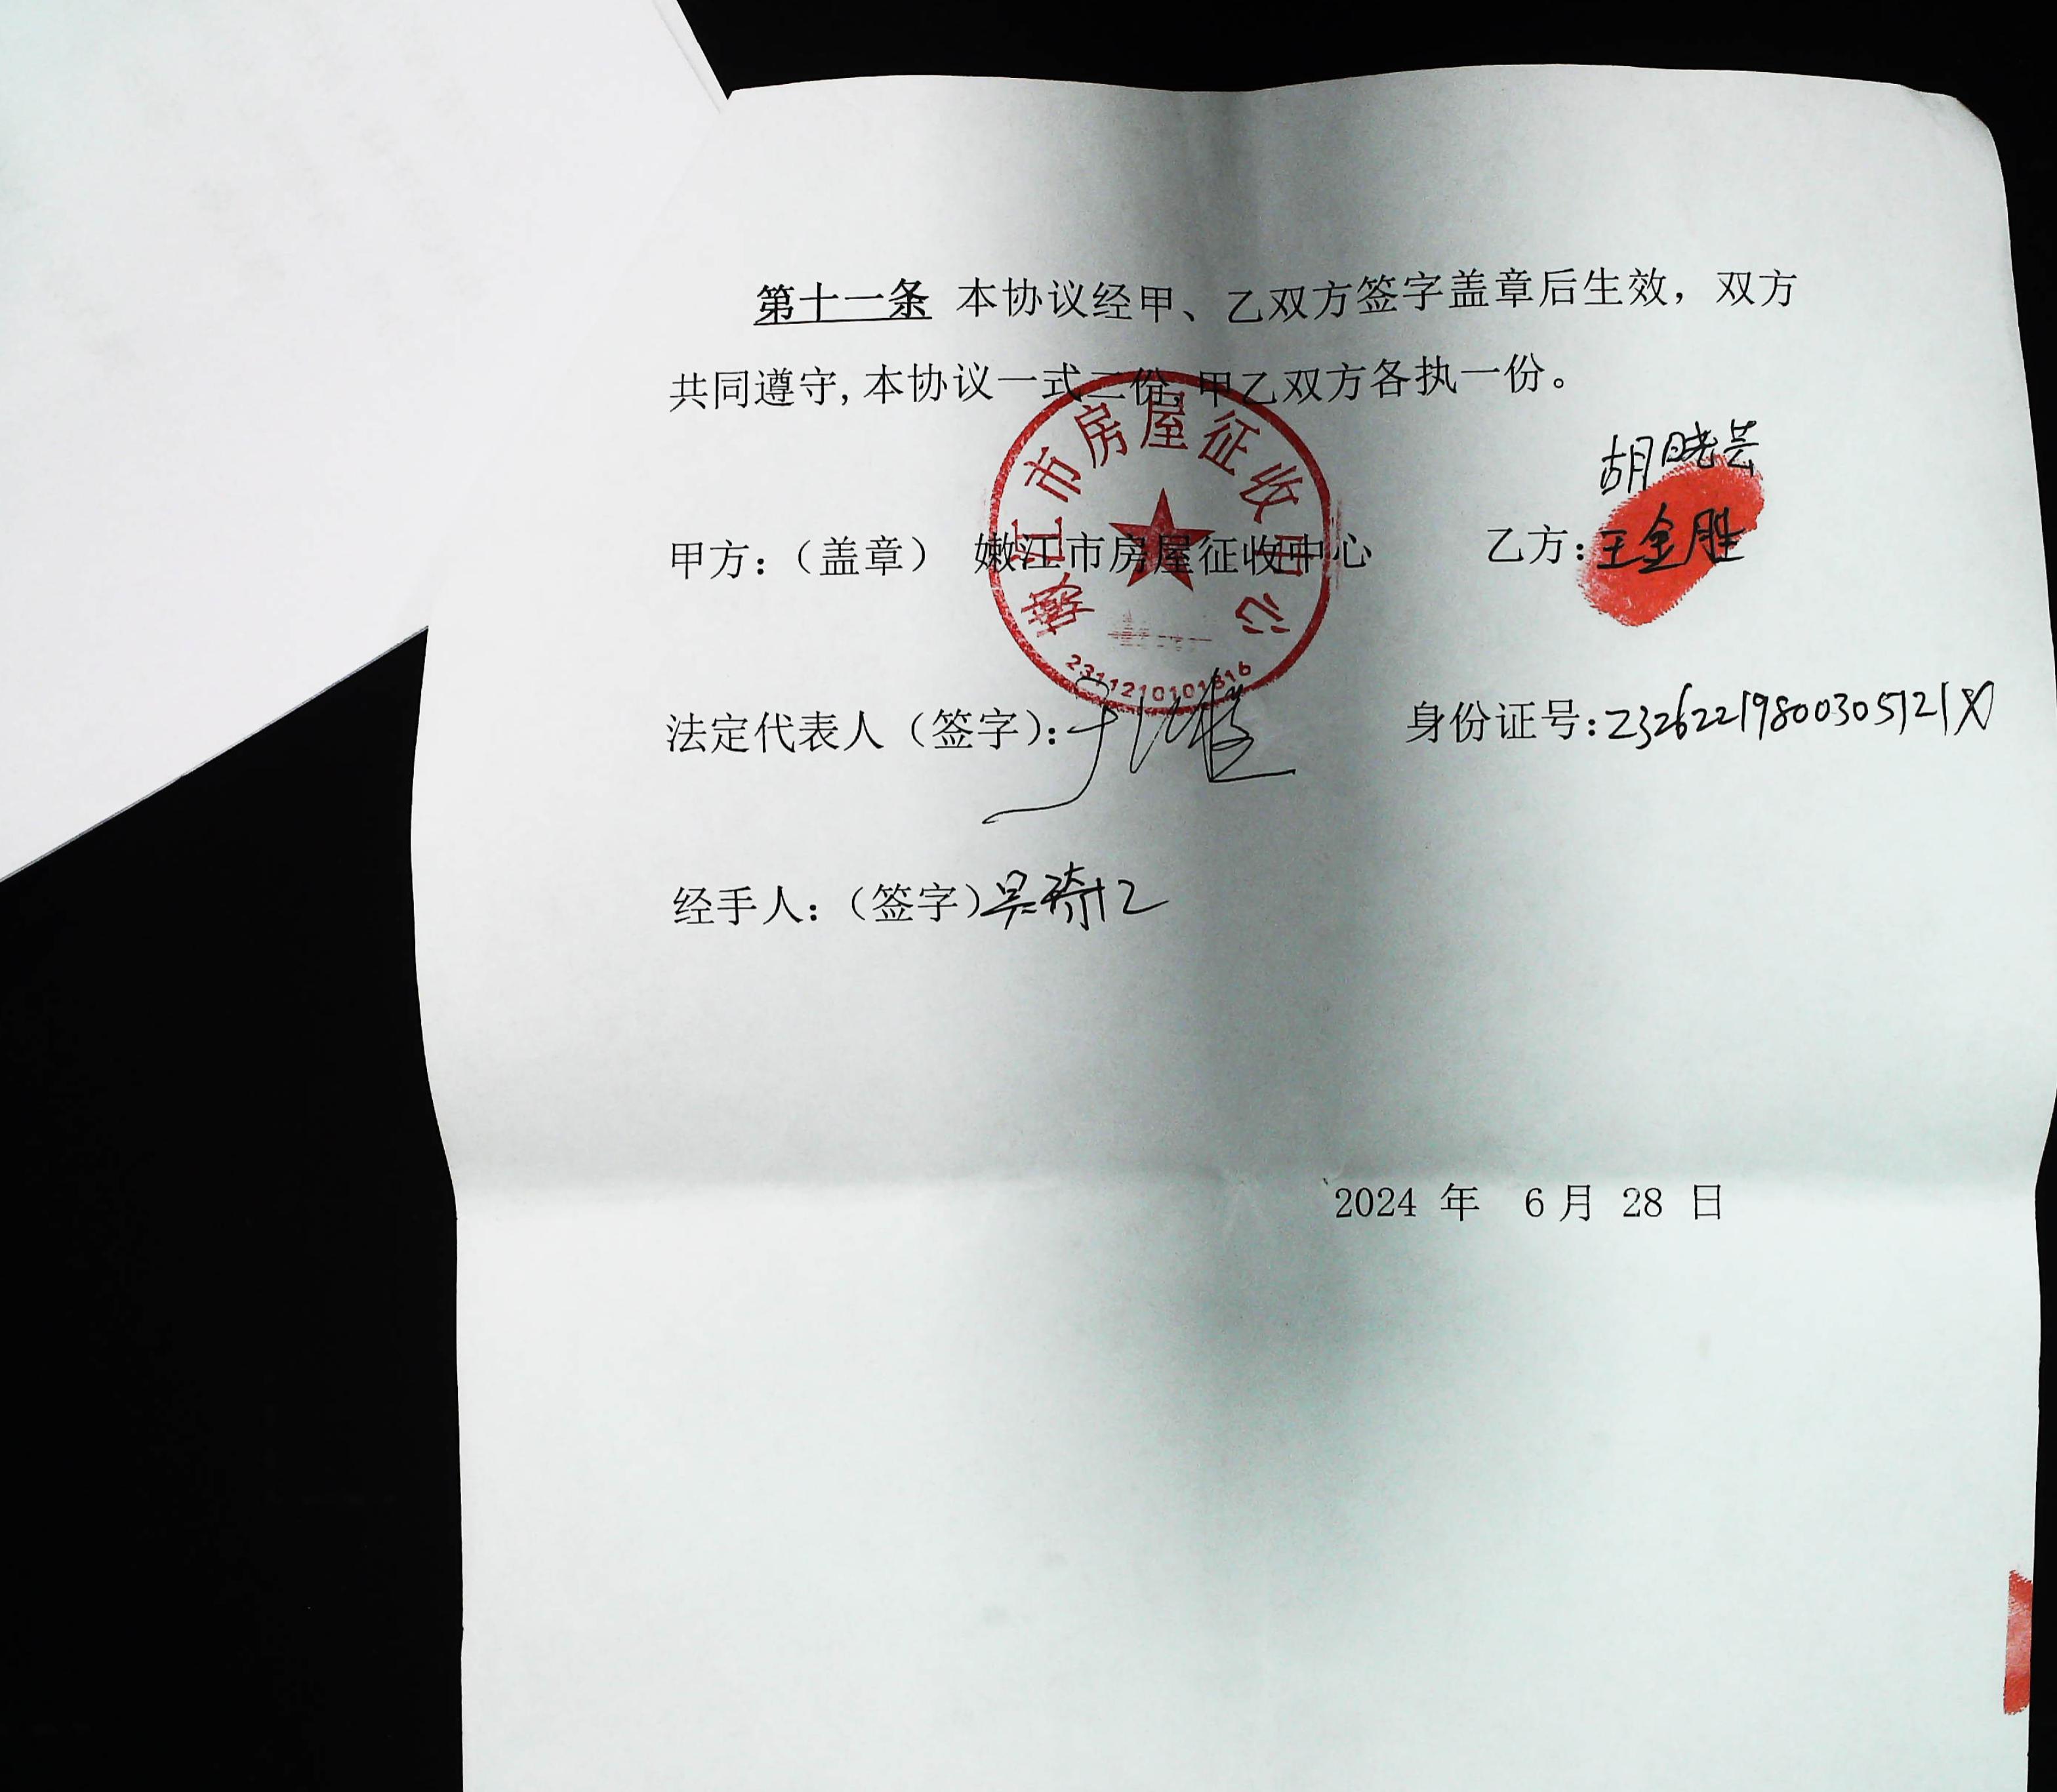 第十一条 本协议经甲、乙双方签字盖章后生效，双方
共同遵守,本协议一式二份,甲乙双方各执一份。
嫩江市房屋征收中心
胡晓芸
甲方：（盖章） 嫩江市房屋征收中心 乙方：王金胜
2311210101816
法定代表人（签字）： 身份证号：23262219800305121X
经手人：（签字）吴琦
2024 年 6月 28 日